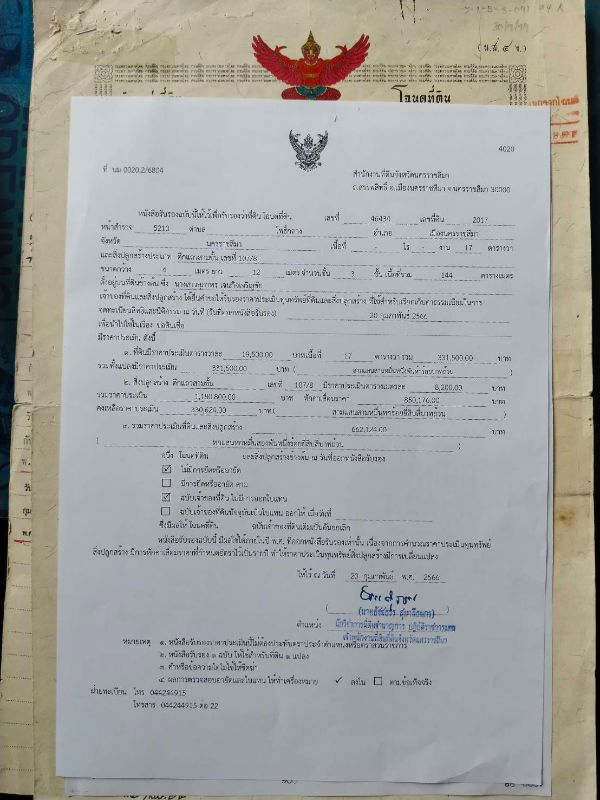 (น.ส. ๔ จ.)
โฉนดที่ดิน
4020
ที่ นม 0020.2/6804
สำนักงานที่ดินจังหวัดนครราชสีมา
ถ.สรรพสิทธิ์ อ.เมืองนครราชสีมา จ.นครราชสีมา 30000
หนังสือรับรองฉบับนี้ให้ไว้เพื่อรับรองว่าที่ดิน โฉนดที่ดิน เลขที่ 46434 เลขที่ดิน 2017
หน้าสำรวจ 5213 ตำบล โพธิ์กลาง อำเภอ เมืองนครราชสีมา
จังหวัด นครราชสีมา เนื้อที่ ไร่ งาน 17 ตารางวา
และสิ่งปลูกสร้างประเภท ตึกแถวสามชั้น เลขที่ 107/8
ขนาดกว้าง 4 เมตร ยาว 12 เมตร จำนวนชั้น 3 ชั้น เนื้อที่รวม 144 ตารางเมตร
ตั้งอยู่บนที่ดินข้างต้น ซึ่ง
เจ้าของที่ดินและสิ่งปลูกสร้าง ได้ยื่นคำขอให้รับรองราคาประเมินทุนทรัพย์ที่ดินและสิ่งปลูกสร้าง ที่ใช้สำหรับเรียกเก็บค่าธรรมเนียมในการ
จดทะเบียนสิทธิและนิติกรรม ณ วันที่ (วันที่ออกหนังสือรับรอง) 20 กุมภาพันธ์ 2566
เพื่อนำไปใช้ในเรื่อง ขอสินเชื่อ
มีราคาประเมิน ดังนี้
๑. ที่ดินมีราคาประเมินตารางวาละ 19,500.00 บาทเนื้อที่ 17 ตารางวา รวม 331,500.00 บาท
รวมทั้งแปลงมีราคาประเมิน 331,500.00 บาท ( สามแสนสามหมื่นหนึ่งพันห้าร้อยบาทถ้วน )
๒. สิ่งปลูกสร้าง ตึกแถวสามชั้น เลขที่ 107/8 มีราคาประเมินตารางเมตรละ 8,200.00 บาท
รวมราคาประเมิน 1,180,800.00 บาท หักค่าเสื่อมราคา 850,176.00 บาท
คงเหลือราคาประเมิน 330,624.00 บาท ( สามแสนสามหมื่นหกร้อยยี่สิบสี่บาทถ้วน )
๓. รวมราคาประเมินที่ดินและสิ่งปลูกสร้าง 662,124.00 บาท
( หกแสนหกหมื่นสองพันหนึ่งร้อยยี่สิบสี่บาทถ้วน )
อนึ่ง โฉนดที่ดิน และสิ่งปลูกสร้างข้างต้น ณ วันที่ออกหนังสือรับรอง
ไม่มีการยึดหรืออายัด
มีการยึดหรืออายัด ตาม
ฉบับเจ้าของที่ดิน ไม่มีการออกใบแทน
ฉบับเจ้าของที่ดินปัจจุบันเป็นใบแทน ออกให้ เมื่อวันที่
ซึ่งมีผลให้ โฉนดที่ดิน ฉบับเจ้าของที่ดินเดิมเป็นอันยกเลิก
หนังสือรับรองฉบับนี้ มีผลใช้ได้ภายในปี พ.ศ. ที่ออกหนังสือรับรองเท่านั้น เนื่องจากการคำนวณราคาประเมินทุนทรัพย์
สิ่งปลูกสร้าง มีการหักค่าเสื่อมราคาที่กำหนดอัตราไว้เป็นรายปี ทำให้ราคาประเมินทุนทรัพย์สิ่งปลูกสร้างมีการเปลี่ยนแปลง
ให้ไว้ ณ วันที่ 20 กุมภาพันธ์ พ.ศ. 2566
ตำแหน่ง นักวิชาการที่ดินชำนาญการ ปฏิบัติราชการแทน
เจ้าพนักงานที่ดินจังหวัดนครราชสีมา
หมายเหตุ ๑. หนังสือรับรองราคาประเมินนี้ไม่ต้องประทับตราประจำตำแหน่งหรือตราส่วนราชการ
๒. หนังสือรับรอง ๑ ฉบับ ให้ใช้สำหรับที่ดิน ๑ แปลง
๓. คำหรือข้อความใดไม่ใช้ให้ขีดฆ่า
๔. ผลการตรวจสอบอายัดและใบแทน ให้ทำเครื่องหมาย ✓ ลงใน ตามข้อเท็จจริง
ฝ่ายทะเบียน โทร 044244915
โทรสาร 044244915 ต่อ 22